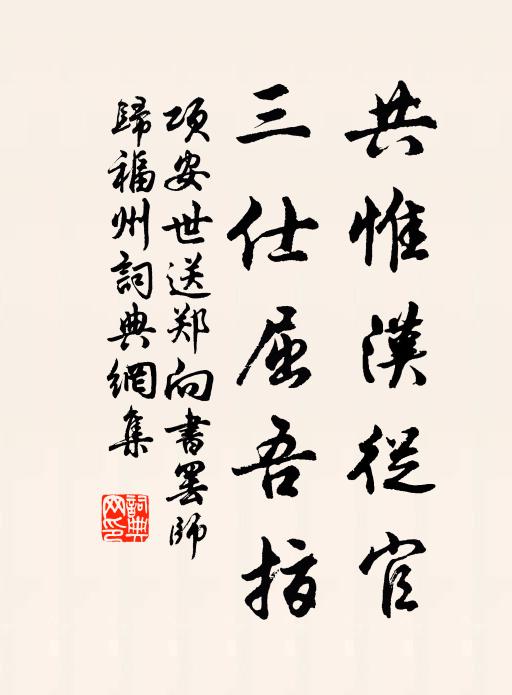 共惟漢從官
三仕屈吾指
项安世送郑向書罢師
歸福州詞典網集
詞典
网印